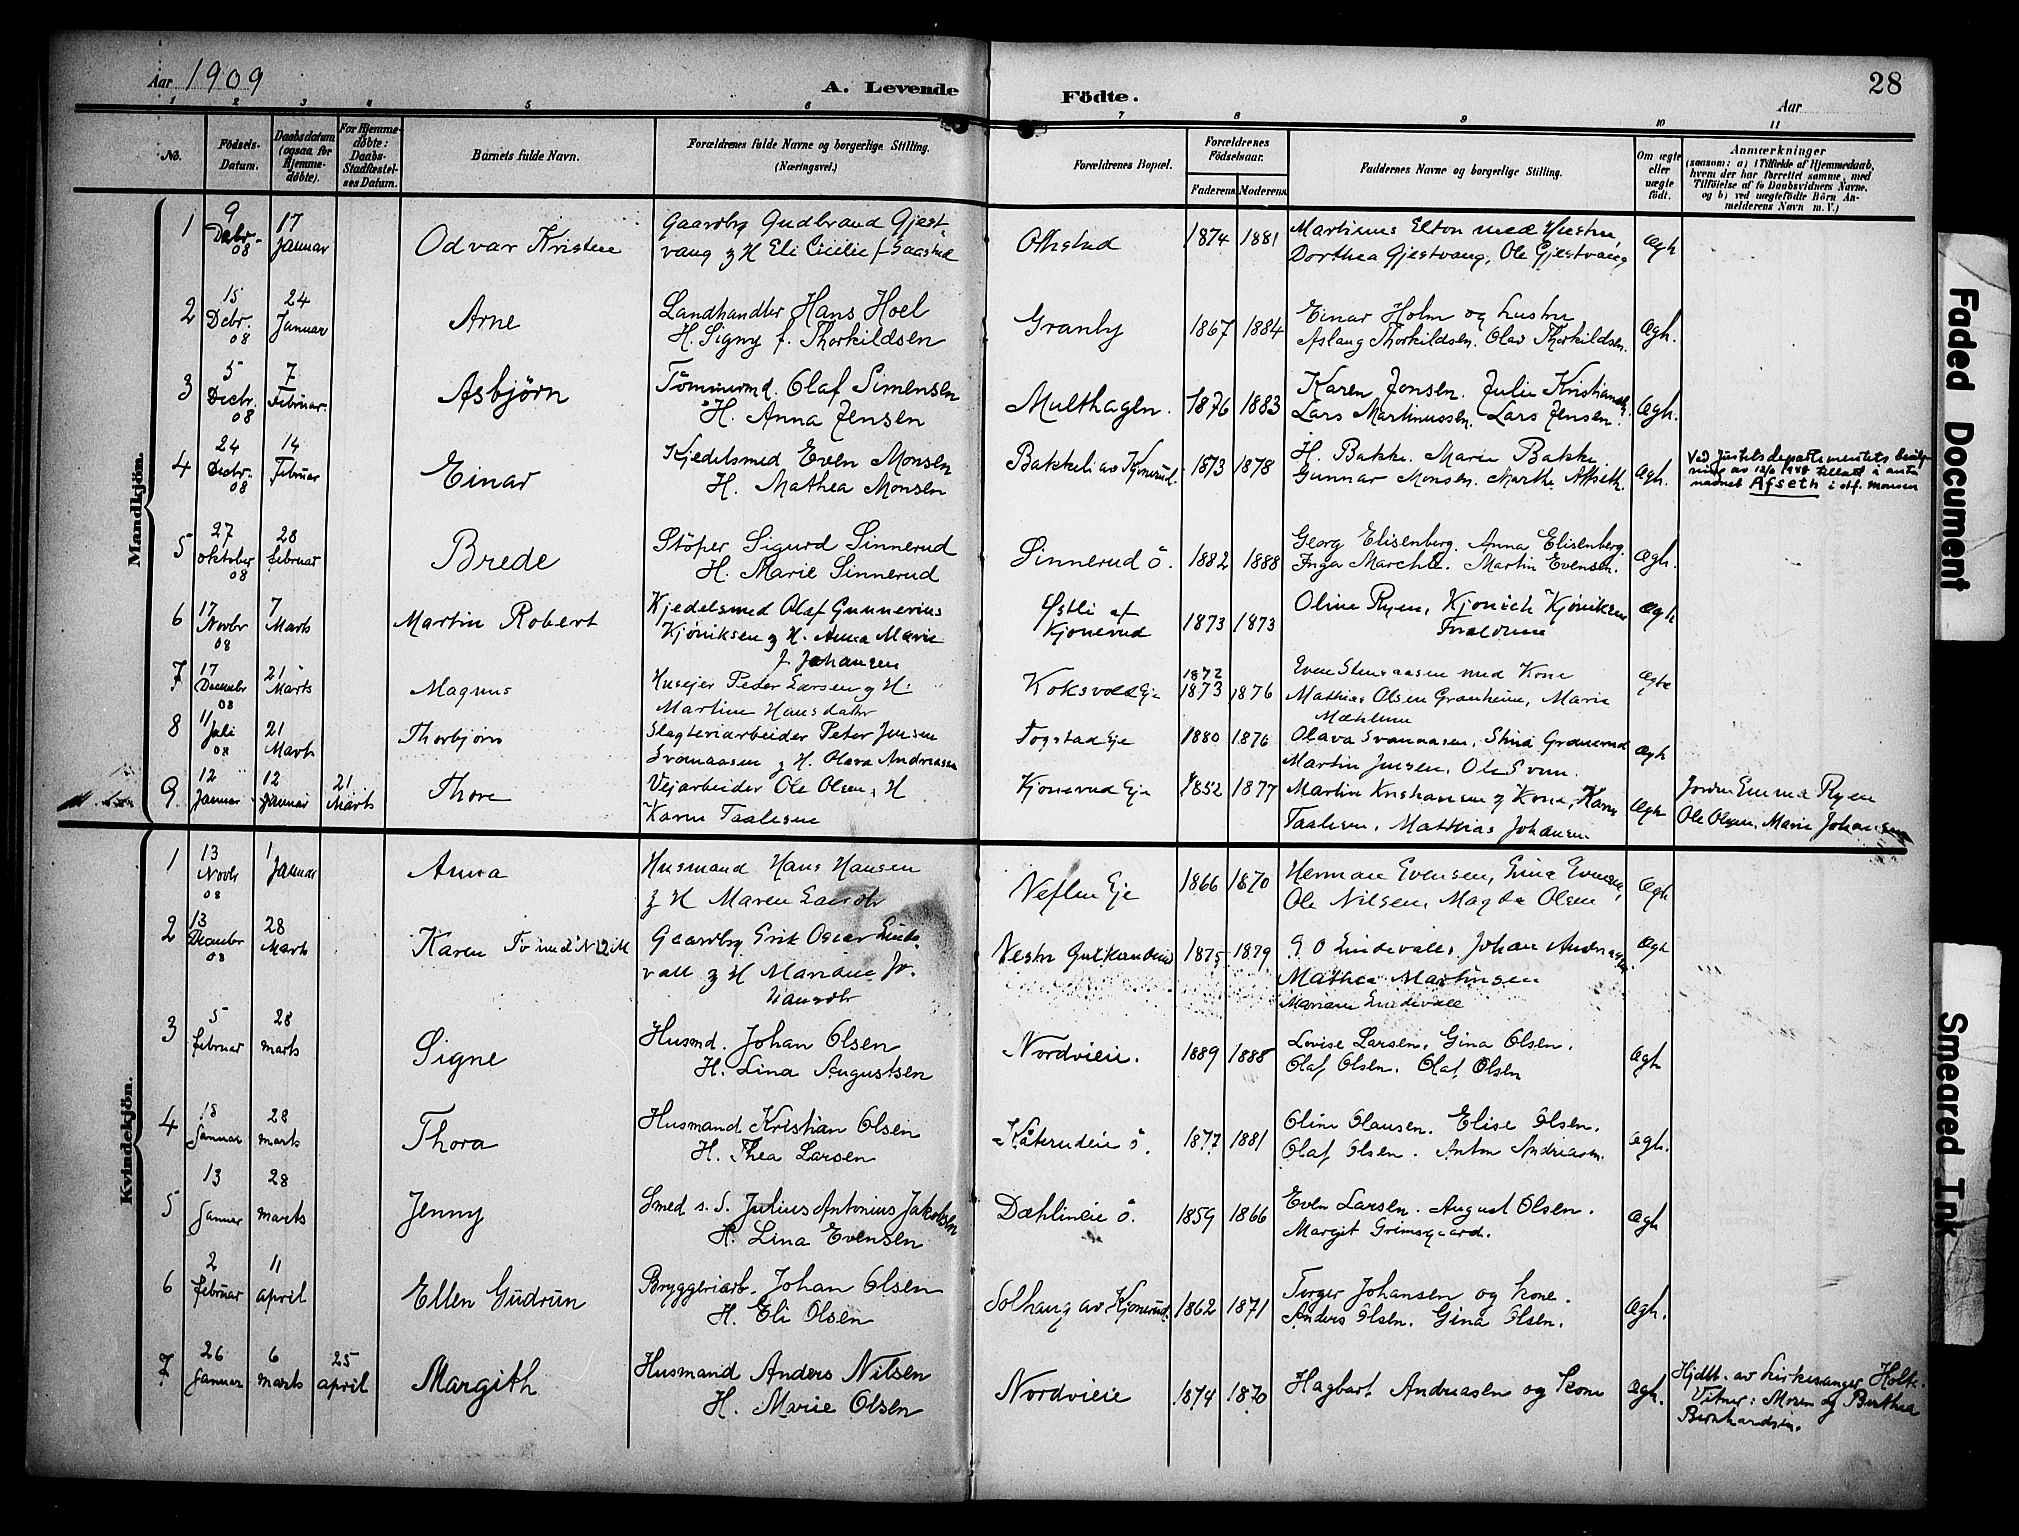 Aar 1909
A. Levende Födte.
Aar
28
1 2 3 4 5 6 7 8 9 10 11
No.
Födsels-Datum.
Daabsdatum (ogsaa for Hjemmedöbte).
For Hjemmedöbte: Daabs-Stadfæstelses Datum.
Barnets fulde Navn.
Forældrenes fulde Navne og borgerlige Stilling. (Næringsvei.)
Forældrenes Bopæl.
Forældrenes Födselsaar.
Faderens. Moderens.
Faddernes Navne og borgerlige Stilling.
Om ægte eller uægte födt.
Anmærkninger
(saasom: a) i Tilfælde af Hjemmedaab,
hvem der har forrettet samme, med
Tilföielse af to Daabsvidners Navne,
og b) ved uægtefödte Börn Anmelderens Navn m. V.)
Mandkjön.
1 9 Decbr. 08 17 Januar Odvar Kristen Gaardbr Gudbrand Gjestvang g H Eli Cicilie f. Gaastad 1874 1881 Martinus Elton med Hustru, Dorthea Gjestvang, Ole Gjestvang Ægh
2 15 Debr. 08 24 Januar Arne Landhandler Hans Hoel H. Signy f. Thorkildsen Granby 1867 1884 Einar Holm og hustru Aslaug Thorkildsen. Olav Thorkildsen. Ægh.
3 5 Decbr. 08 7 Februar. Asbjørn Tömmermd. Olaf Simensen H. Anna Jensen Multhagen. 1876 1883 Karen Jonsen. Julie Kristiansen. Lars Martinussen. Lars Jensen. Ægh.
4 24 Decbr. 08 14 Februar Einar Kjedelsmed Even Monsen H. Mathea Monsen Bakkeli av Kjonerud. 1873 1878 H. Bakke. Marie Bakke Gunnar Monsen. Marthe Afseth. Ægh. Ved Justisdepartementets av tillatt å anta navnet Afseth i st.f. Monsen
5 27 oktober 08 28 februar Brede Stöper Sigurd Sinnerud H. Marie Sinnerud Sinnerud ö. 1882 1888 Georg Elisenberg. Anna Elisenberg. Inga Marthe. Martin Evensen. Ægh.
6 17 Novbr 08 7 Marts Martin Robert Kjedelsmed Olaf Gunnerius Kjöniksen g H. Anna Marie f. Johansen Østli af Kjonerud 1873 1873 Oline Ryen, Kjönich Kjöniksen Forældrene Ægh
7 17 December 08 21 Marts Magnus Huseier Peder Larsen g H. Martine Hansdatter Koksvold Eje 1872 1873 1876 Even Stensaasen med Kone Mathias Olsen Granheim, Marie Mæhlum Ægte
8 11 Juli 08 21 Marts Thorbjörn Slagteriarbeider Peter Jensen Svenaasen g H. Olava Andreassen Fogstad Eje 1880 1876 Olava Svenaasen, Stina Granerud Martin Jensen, Ole Svenn. Ægh
9 12 Januar 12 Januar 21 Marts Thore Vejarbeider Ole Olsen, H Karen Taalesen Kjonerud Eje 1852 1877 Martin Kristiansen g Kone, Karen Taalesen, Matthias Johansen Ægh Jordm Emma Ryen Ole Olsen, Marie Johansen
Kvindekjön.
1 13 Novbr 08 1 Januar Anna Husmand Hans Hansen g H Maren Larsdtr Neflen Eje 1866 1870 Herman Evensen, Lina Evensen, Ole Nilsen, Magda Olsen Ægh
2 13 December 08 28 Marts Karen Gaardbr Erik Oscar Lindevall g H Mariane Johansdtr Vestre Gutkanderud 1875 1879 E O Lindevall, Johan Andreassen. Mathea Martinsen Mariane Lindevall Ægh
3 5 februar 28 marts Signe Husmd. Johan Olsen H. Lina Augustsen Nordvieie. 1889 1888 Lovise Larsen. Gina Olsen. Olaf Olsen. Olaf Olsen Ægh
4 18 Januar 28 marts Thora Husmand Kristian Olsen H. Thea Larsen Kåterudeie ö. 1877 1881 Oline Olausen. Elise Olsen. Olaf Olsen. Anton Andreasen. Ægh.
5 13 Januar 28 marts Jenny Smed s.S. Julius Antonius Jakobsen H. Lina Evensen Dæhlineie ö. 1859 1866 Even Larsen. August Olsen. Margit Grimsgaard. Ægh
6 2 februar 11 april Ellen Gudrun Bryggeriarb. Johan Olsen H. Eli Olsen Solhaug av Kjonerud. 1862 1871 Torger Johansen og kone. Anders Olsen. Gina Olsen. Ægh.
7. 26 Januar 6 marts 25 april Margith Husmand Anders Nilsen H. Marie Olsen Nordvieie 1874 1870 Hagbart Andreasen og kone Ægh. Hjdbt. av kirkesanger Holte. Vitner: Moren og Berthea Bernhardsen.
Faded Document
Smeared Ink